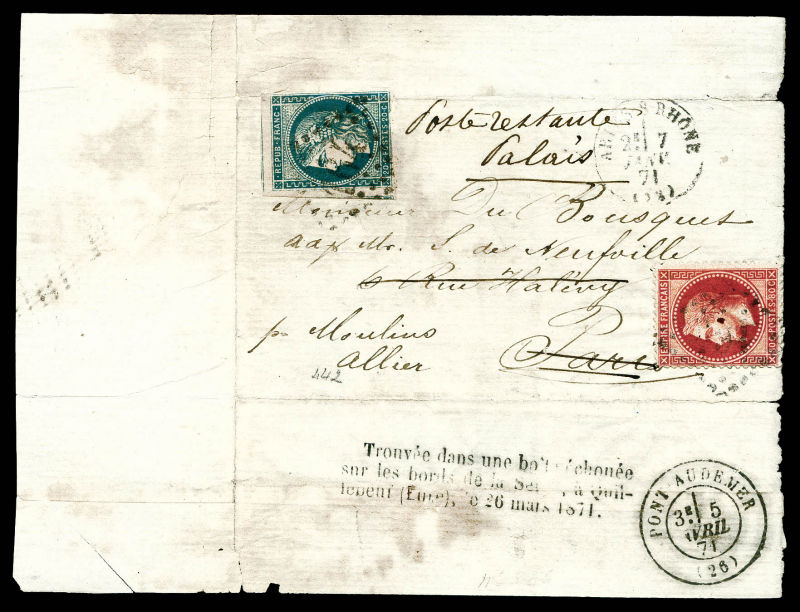 REPUB. FRANC.
20 C. POSTES 20 C.
Poste restante
Palais
S RHÔNE
2E 7
JANV.
71
Monsieur Du Bousquet
aux Mr. S. de Neufville
6 Rue Halévy
Paris
pr Moulins
Allier
442
EMPIRE FRANÇAIS
80 C POSTES 80 C
Trouvée dans une boîte échouée
sur les bords de la Seine, à Quil-
lebeuf (Eure), le 26 mars 1871.
PONT-AUDEMER
3E 5
AVRIL
71
(26)